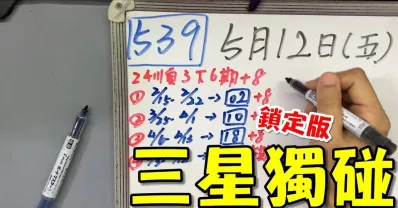 539
5月12日(五)
24順自3下6期+8
① 3/15- 3/22 → 02 +8
② 3/25- 4/1 → 10 +8
③ 4/6- 4/15 → 18 +8
鎖定版
三星獨碰